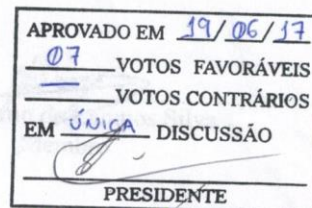 APROVADO EM 19/06/17
07 VOTOS FAVORÁVEIS
— VOTOS CONTRÁRIOS
EM ÚNICA DISCUSSÃO
PRESIDENTE